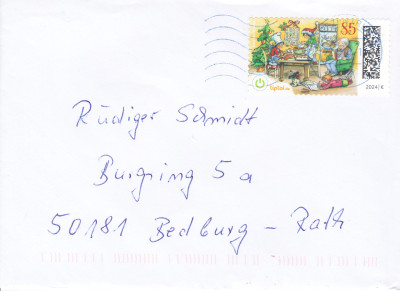 85
tiptoi
2024 | €
Rüdiger Schmidt
Burgring 5 a
50181 Bedburg - Rath